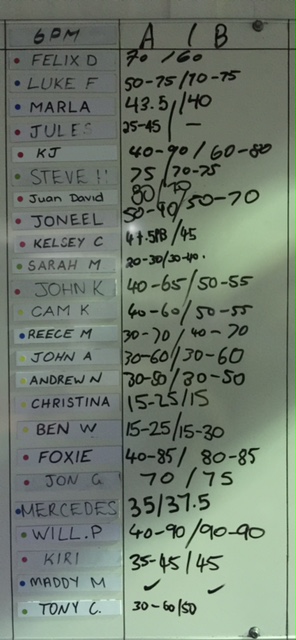 6PM A / B
FELIX D 70 / 60
LUKE F 50-75/70-75
MARLA 43.5/40
JULES 25-45 / -
KJ 40-90 / 60-80
STEVE H 75 / 70-75
Juan David 80/70
JONEEL 50-90/50-70
KELSEY C 45
SARAH M 20-30/30-40.
JOHN K 40-65/50-55
CAM K 40-60/50-55
REECE M 30-70/40-70
JOHN A 30-60/30-60
ANDREW N 30-50/30-50
CHRISTINA 15-25/15
BEN W 15-25/15-30
FOXIE 40-85/80-85
JON G 70/75
MERCEDES 35/37.5
WILL.P 40-90/90-90
KIRI 35-45/45
MADDY M ✓ ✓
TONY C. 30-60/50